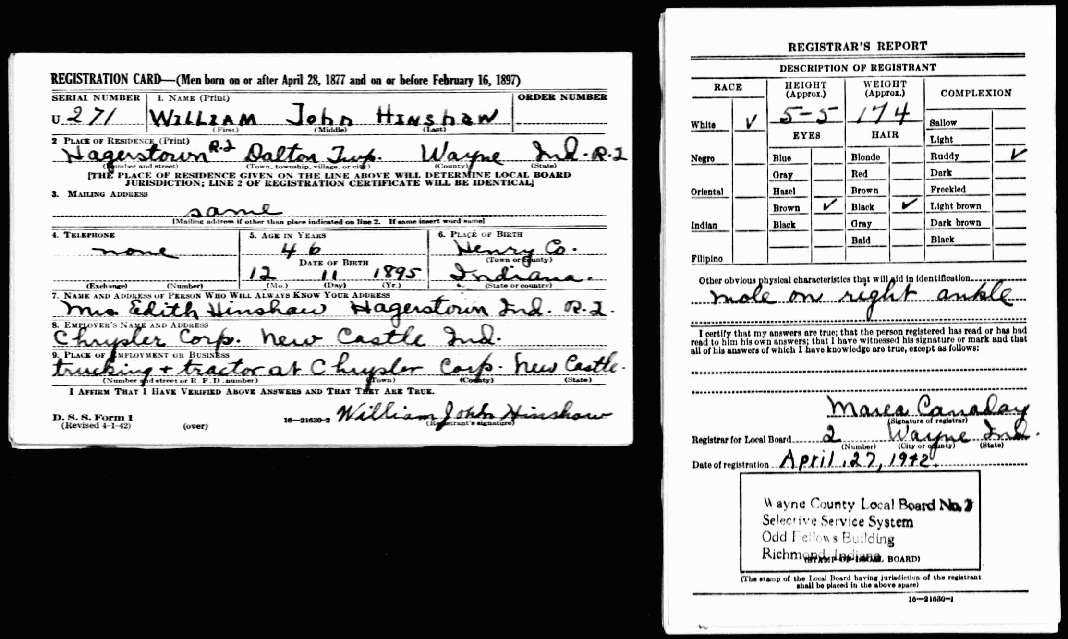 REGISTRATION CARD—(Men born on or after April 28, 1877 and on or before February 16, 1897)
SERIAL NUMBER 1. NAME (Print) ORDER NUMBER
U 271 WILLIAM John HINSHAW
(First) (Middle) (Last)
2 PLACE OF RESIDENCE (Print)
Hagerstown R.2 Dalton Twp. Wayne Ind. R.2
(Number and street) (Town, township, village, or city) (County) (State)
[THE PLACE OF RESIDENCE GIVEN ON THE LINE ABOVE WILL DETERMINE LOCAL BOARD
JURISDICTION; LINE 2 OF REGISTRATION CERTIFICATE WILL BE IDENTICAL]
3. MAILING ADDRESS
same
[Mailing address if other than place indicated on line 2. If same insert word same]
4. TELEPHONE 5. AGE IN YEARS 6. PLACE OF BIRTH
none 46 Henry Co.
DATE OF BIRTH (Town or county)
12 11 1895 Indiana.
(Exchange) (Number) (Mo.) (Day) (Yr.) (State or country)
7. NAME AND ADDRESS OF PERSON WHO WILL ALWAYS KNOW YOUR ADDRESS
Mrs Edith Hinshaw Hagerstown Ind. R.2.
8. EMPLOYER'S NAME AND ADDRESS
Chrysler Corp. New Castle Ind.
9. PLACE OF EMPLOYMENT OR BUSINESS
trucking + tractor at Chrysler Corp. New Castle.
(Number and street or R. F. D. number) (Town) (County) (State)
I AFFIRM THAT I HAVE VERIFIED ABOVE ANSWERS AND THAT THEY ARE TRUE.
D. S. S. Form 1
(Revised 4-1-42) (over) 16—21630-2 William John Hinshaw
(Registrant's signature)
REGISTRAR'S REPORT
DESCRIPTION OF REGISTRANT
RACE HEIGHT (Approx.) WEIGHT (Approx.) COMPLEXION
5-5 174
White ✓ EYES HAIR Sallow
Light
Negro Blue Blonde Ruddy ✓
Gray Red Dark
Oriental Hazel Brown Freckled
Brown ✓ Black ✓ Light brown
Indian Black Gray Dark brown
Bald Black
Filipino
Other obvious physical characteristics that will aid in identification
mole on right ankle
I certify that my answers are true; that the person registered has read or has had
read to him his own answers; that I have witnessed his signature or mark and that
all of his answers of which I have knowledge are true, except as follows:
Canaday
(Signature of registrar)
Registrar for Local Board 2 Wayne Ind.
(Number) (City or county) (State)
Date of registration April 27, 1942.
Wayne County Local Board No. 2
Selective Service System
Odd Fellows Building
Richmond, Indiana
(STAMP OF LOCAL BOARD)
(The stamp of the Local Board having jurisdiction of the registrant
shall be placed in the above space)
16—21630-1